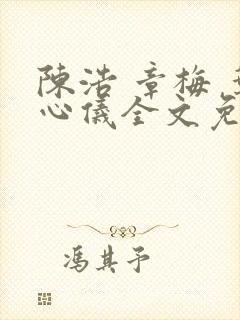 陳浩 章梅
心儀全文免
馮其予